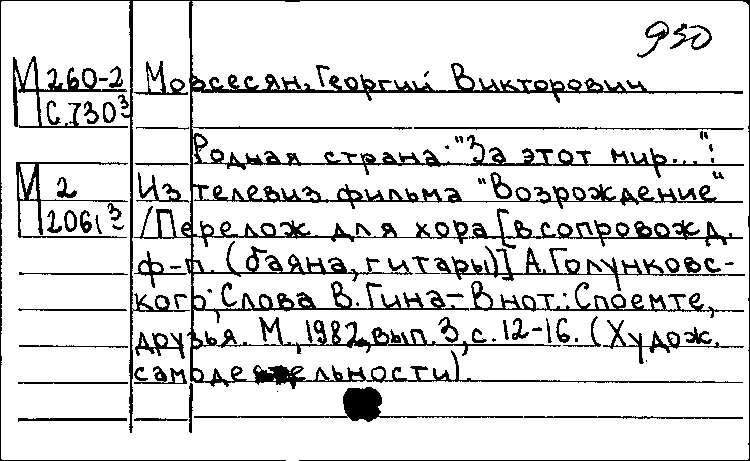 950
М 260-2 Мовсесян, Георгий Викторович
С.730³
Родная страна: "За этот мир...":
М 2 Из телевиз. фильма "Возрождение"
2061³ /Перелож. для хора [в сопровожд.
ф-п. (баяна, гитары)] А. Голунковс-
кого; Слова В. Гина - В нот.: Споемте,
друзья. М., 1982, вып. 3, с. 12-16. (Худож.
самодеятельности).